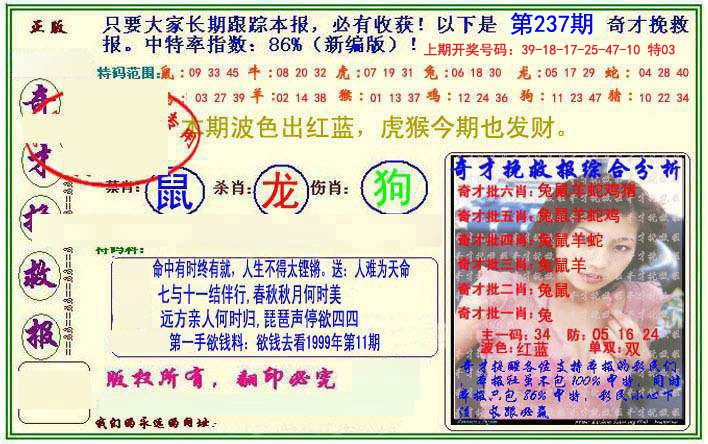 正版
只要大家长期跟踪本报，必有收获！以下是 第237期 奇才挽救
报。中特率指数：86%（新编版）！ 上期开奖号码：39-18-17-25-47-10 特03
特码范围：鼠：09 33 45 牛：08 20 32 虎：07 19 31 兔：06 18 30 龙：05 17 29 蛇：04 28 40
：03 27 39 羊：02 14 38 猴：01 13 37 鸡：12 24 36 狗：11 23 47 猪：10 22 34
本期波色出红蓝，虎猴今期也发财。
禁肖：鼠 杀肖：龙 伤肖：狗
奇才挽救报
特码料：
命中有时终有就，人生不得太铿锵。送：人难为天命
七与十一结伴行,春秋秋月何时美
远方亲人何时归,琵琶声停欲四四
第一手欲钱料：欲钱去看1999年第11期
版权所有，翻印必究
我们的永远的网址：
奇才挽救报综合分析
奇才批六肖：兔鼠羊蛇鸡猪
奇才批五肖：兔鼠羊蛇鸡
奇才批四肖：兔鼠羊蛇
奇才批三肖：兔鼠羊
奇才批二肖：兔鼠
奇才批一肖：兔
主一码：34 防：05 16 24
波色：红蓝 单双：双
奇才提醒各位支持本报的彩民们
，本报社虽不包100%中特，同时
本报只包86%中特，彩民小心下
注，长跟必赢